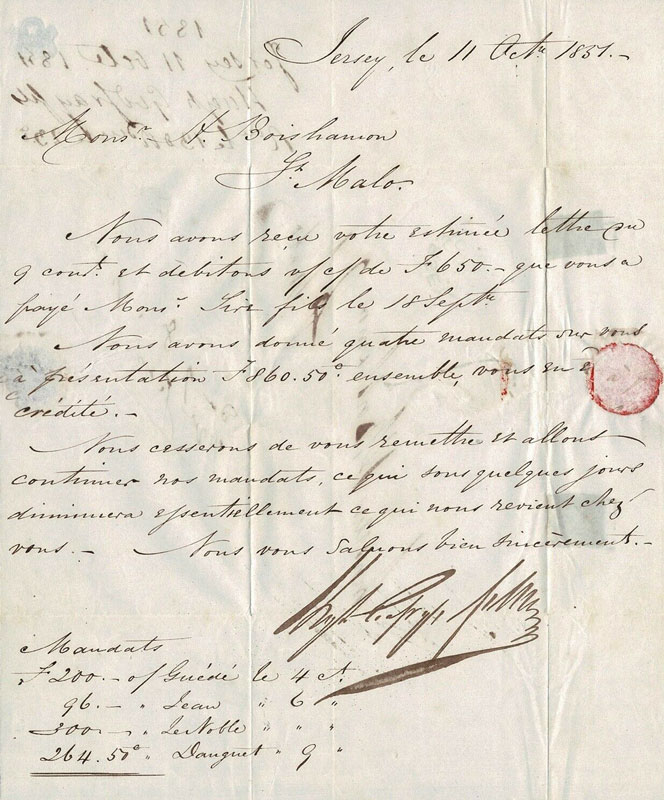 Jersey, le 11 Octre 1831.-
Monsr. H Boishamon
St. Malo.
Nous avons reçu votre estimée lettre du
9 cont. et débitons v/c/ de F 650.- que vous a
payé Monsr. Sire fils le 18 Septre
Nous avons donné quatre mandats sur vous
à présentation F 860.50c ensemble, vous en
crédité.-
Nous cesserons de vous remettre et allons
continuer nos mandats, ce qui sous quelques jours
diminuera essentiellement ce qui nous revient chez
vous.- Nous vous Saluons bien sincèrement.-
Mandats
F 200.- o/ Guédé le 4 ct.
96.- " Jean " 6 "
300.- " LeNoble " " "
264.50c " Dauguet " 9 "
1831
Jersey 11 Octre 1831